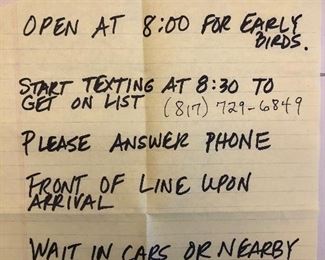 OPEN AT 8:00 FOR EARLY
BIRDS.
START TEXTING AT 8:30 TO
GET ON LIST (817) 729-6849
PLEASE ANSWER PHONE
FRONT OF LINE UPON
ARRIVAL
WAIT IN CARS OR NEARBY